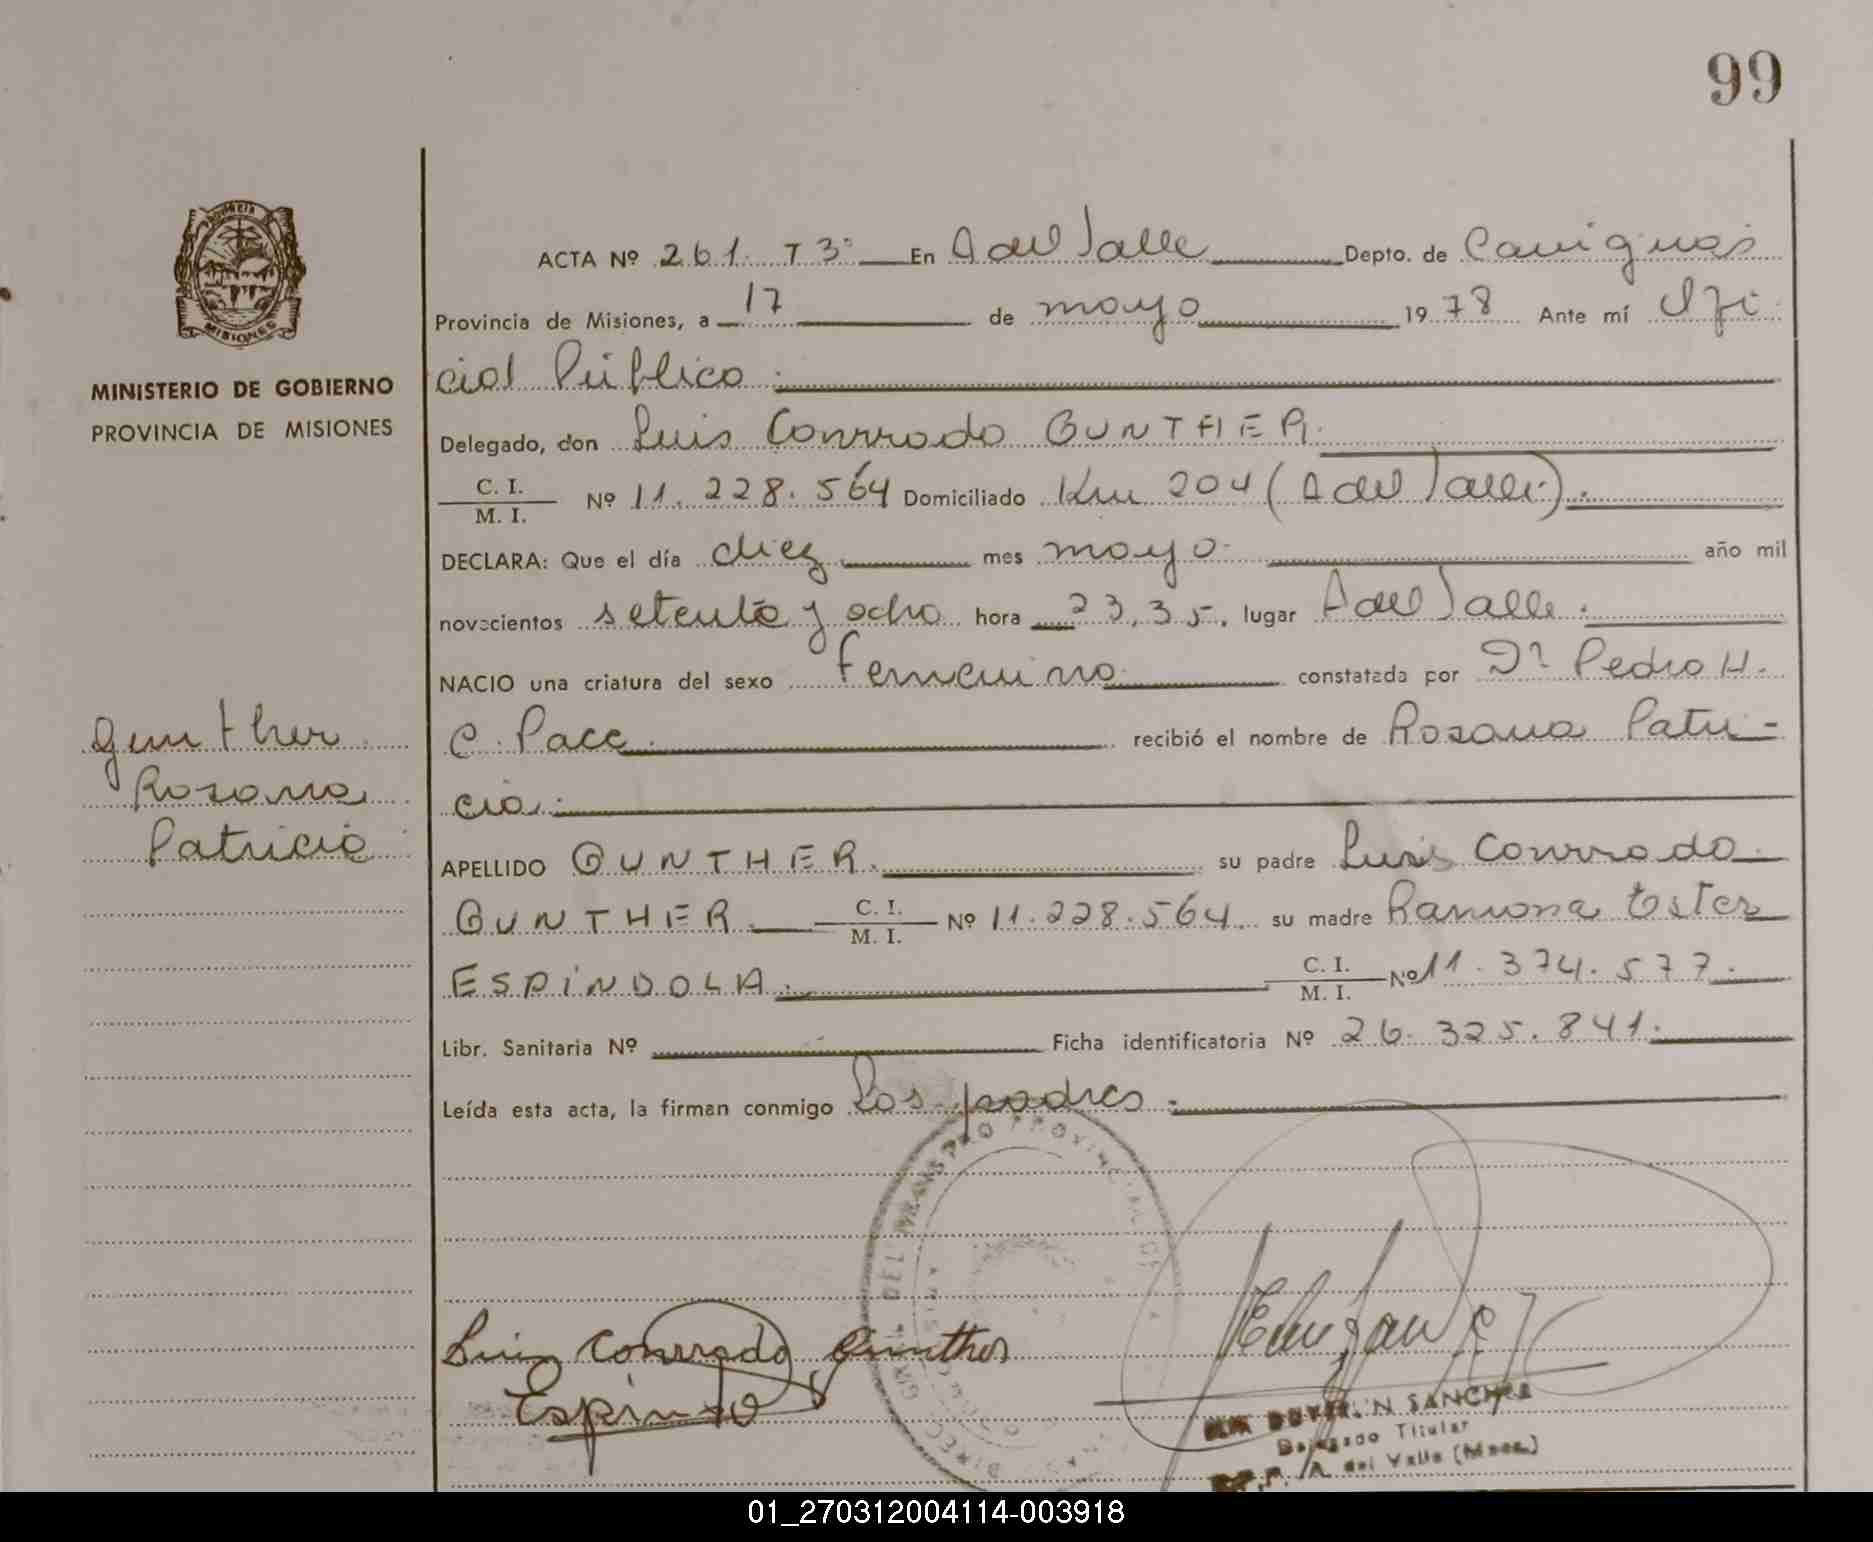 99
PROVINCIA
MISIONES
MINISTERIO DE GOBIERNO
PROVINCIA DE MISIONES
Gunther
Rosana
Patricia
ACTA Nº 261. T 3º En A del Valle Depto. de Cainguás
Provincia de Misiones, a 17 de mayo 1978 Ante mí Ofi
cial Público.
Delegado, don Luis Conrrado GUNTHER.
C. I. / M. I. Nº 11.228.564 Domiciliado Km 204 (A del Valle).
DECLARA: Que el día diez mes mayo. año mil
novecientos setenta y ocho hora 23,35. lugar A del Valle.
NACIO una criatura del sexo femenino constatada por Dr Pedro H.
C. Pace. recibió el nombre de Rosana Patri-
cia.
APELLIDO GUNTHER. su padre Luis Conrrado
GUNTHER. C. I. / M. I. Nº 11.228.564. su madre Ramona Ester
ESPÍNDOLA. C. I. / M. I. Nº 11.374.577.
Libr. Sanitaria Nº Ficha identificatoria Nº 26.325.841.
Leída esta acta, la firman conmigo los padres.
REGISTRO PROVINCIAL DE
Luis Conrrado Gunther
SANCHEZ
Delegado Titular
A. del Valle (Mnes.)
01_270312004114-003918